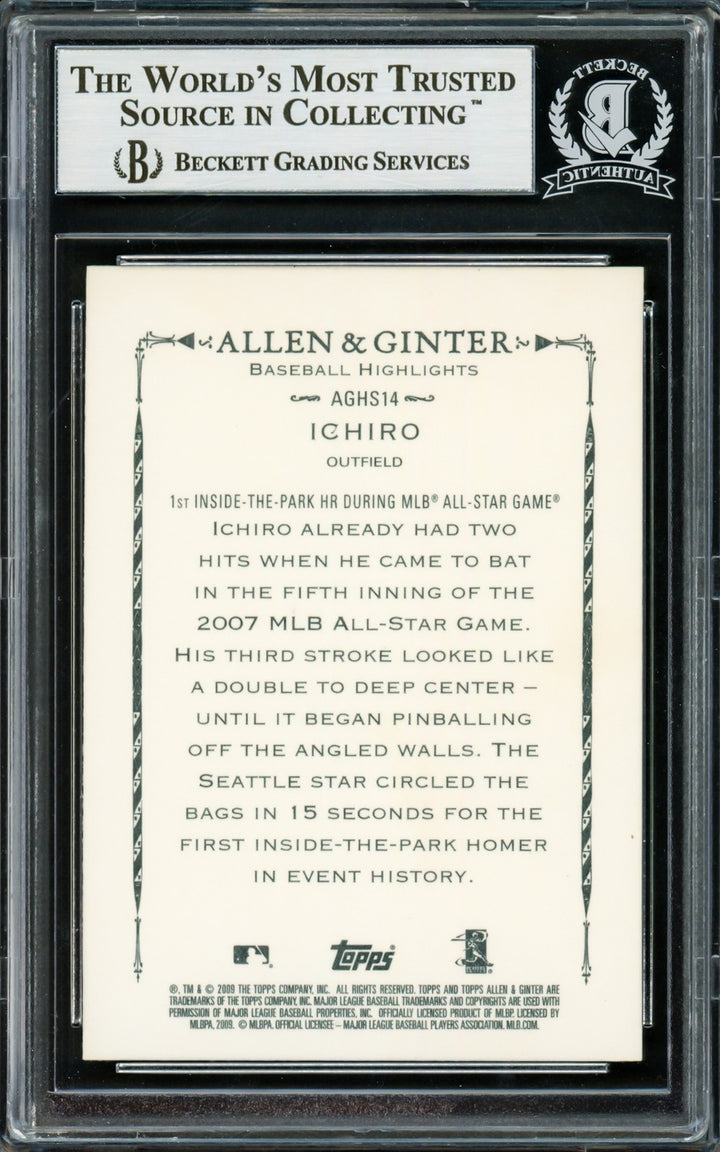 THE WORLD'S MOST TRUSTED
SOURCE IN COLLECTING™
B BECKETT GRADING SERVICES
BECKETT
AUTHENTIC
ALLEN & GINTER
BASEBALL HIGHLIGHTS
AGHS14
ICHIRO
OUTFIELD
1ST INSIDE-THE-PARK HR DURING MLB® ALL-STAR GAME®
ICHIRO ALREADY HAD TWO
HITS WHEN HE CAME TO BAT
IN THE FIFTH INNING OF THE
2007 MLB ALL-STAR GAME.
HIS THIRD STROKE LOOKED LIKE
A DOUBLE TO DEEP CENTER –
UNTIL IT BEGAN PINBALLING
OFF THE ANGLED WALLS. THE
SEATTLE STAR CIRCLED THE
BAGS IN 15 SECONDS FOR THE
FIRST INSIDE-THE-PARK HOMER
IN EVENT HISTORY.
Topps®
®, TM & © 2009 THE TOPPS COMPANY, INC. ALL RIGHTS RESERVED. TOPPS AND TOPPS ALLEN & GINTER ARE
TRADEMARKS OF THE TOPPS COMPANY, INC. MAJOR LEAGUE BASEBALL TRADEMARKS AND COPYRIGHTS ARE USED WITH
PERMISSION OF MAJOR LEAGUE BASEBALL PROPERTIES, INC. OFFICIALLY LICENSED PRODUCT OF MLBP. LICENSED BY
MLBPA, 2009. © MLBPA. OFFICIAL LICENSEE – MAJOR LEAGUE BASEBALL PLAYERS ASSOCIATION. MLB.COM.